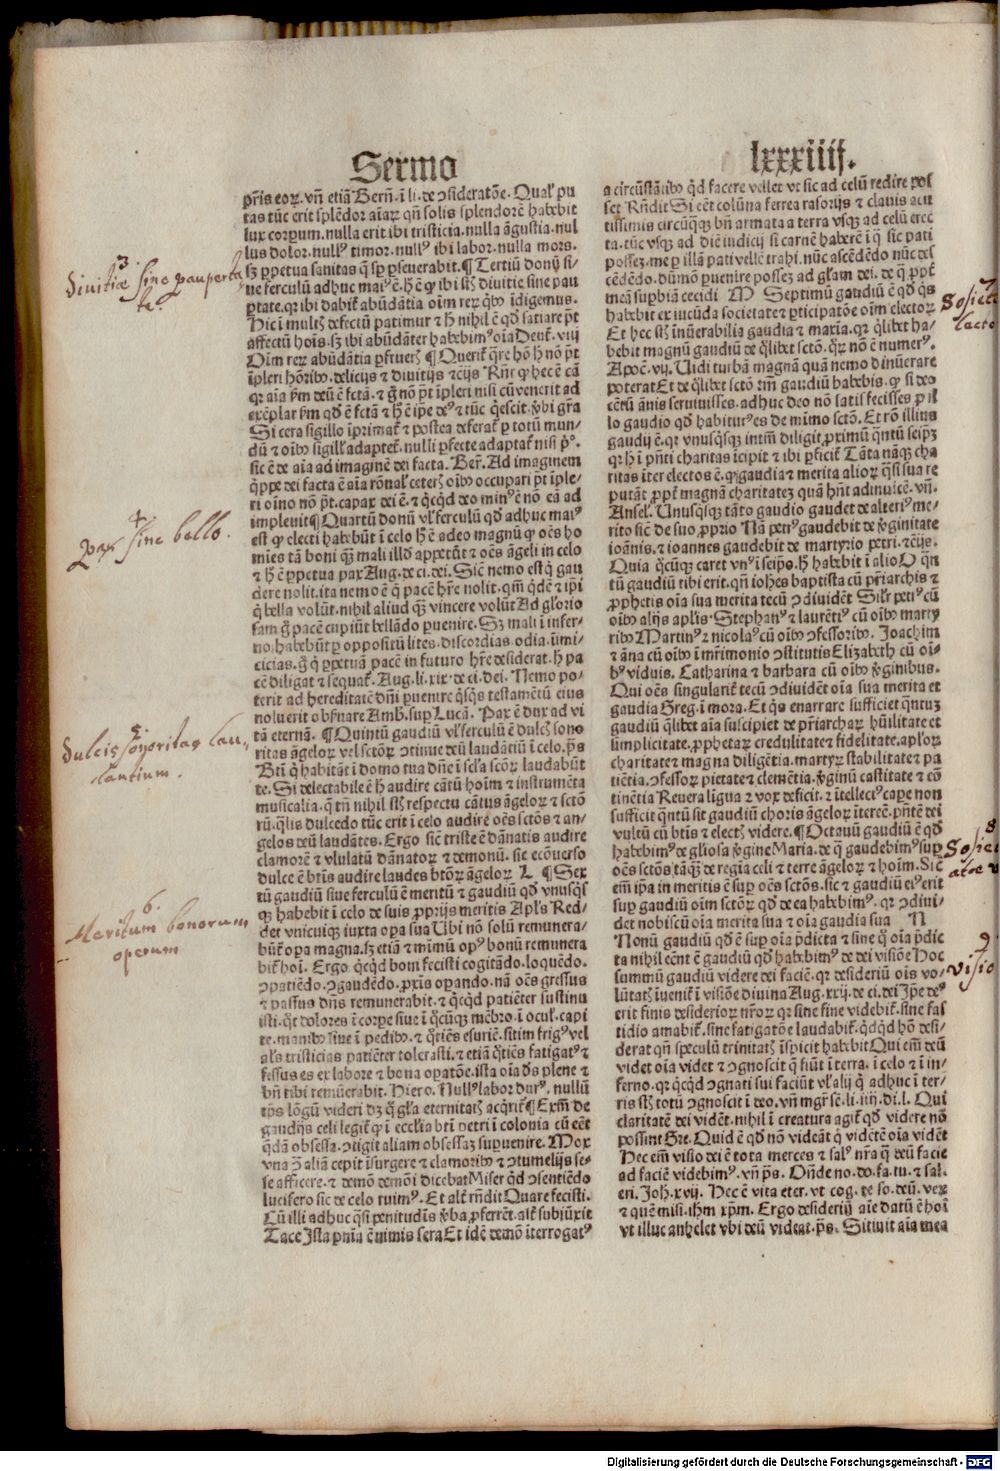 Sermo
lxxxiiij.
p̄ris eoꝝ. vn̄ etiā Bern̄. ī li. de ↄsideratōe. Qual' pu
tas tūc erit splēdor aīaꝝ qn̄ solis splendorē habebit
lux corpum. nulla erit ibi tristicia. nulla āgustia. nul
lus dolor. null⁹ timor. null⁹ ibi labor. nulla mors.
sꝫ ꝑpetua sanitas q̄ sꝑ ꝑseuerabit. ¶ Tertiū donū si-
ue ferculū adhuc mai⁹ ē. h̄ ē ꝙ ibi st̄ diuitie sine pau
ꝑtate. qꝛ ibi dabit̄ abūdātia oīm reꝝ qͥbꝫ īdigemus.
Hic ī mult̄ defectū patimur ⁊ h̄ nihil ē qd̄ satiare pn̄t
affectū hoīs. sꝫ ibi abūdāter habebim⁹ oīa Deut̄. viij
Oīm reꝝ abūdātia ꝑfruet̄ ¶ Querit̄ q̄re hō h̄ nō pn̄t
īpleri hōribꝫ. delicijs ⁊ diuitijs ⁊c̄ijs Rn̄r ꝙ hec ē cā
qꝛ aīa ꝑm deū ē fctā. ⁊ g̊ nō pn̄t īpleri nisi cū venerit ad
exēplar ꝑm qd̄ ē fctā ⁊ h̄ ē ip̄e de⁹ ⁊ tūc q̄escit. v̄bi gr̄a
Si cera sigillo īprimat̄ ⁊ postea deferat̄ ꝑ totū mun-
dū ⁊ oībꝫ sigill' adaptet̄. nulli ꝑfecte adaptat̄ nisi pͥ°.
sic ē de aīa ad imaginē dei facta. Ber̄. Ad imaginem
q̄ppe dei facta ē aīa rōnal' ceter̄ oībꝫ occupari pn̄t īple-
ri oīno nō pn̄t. capax dei ē. ⁊ q̄cqd̄ deo min⁹ ē nō eā ad
impleuit ¶ Quartū donū vl' ferculū qd̄ adhuc mai⁹
est ꝙ electi habebūt ī celo h̄ ē adeo magnū ꝙ oēs ho
mīes tā boni qꝫ mali illd̄ appetūt ⁊ oēs āgeli in celo
⁊ h̄ ē ꝑpetua pax Aug. de ci. dei. Sic̄ nemo est q̄ gau
dere nolit. ita nemo ē q̄ pacē hr̄e nolit. qm̄ qͥdē ⁊ ip̄i
q̄ bella volūt. nihil aliud qꝫ vincere volūt Ad gl'orio
sam g̊ pacē cupiūt bellādo ꝑuenire. Sꝫ mali ī infer-
no. habebūt ꝑ oppositū lites. discordias. odia. īimi-
cicias. g̊ q̄ ꝑpetuā pacē in futuro hr̄e desiderat. h̄ pa
cē diligat ⁊ sequat̄. Aug. li. xix. de ci. dei. Nemo po-
terit ad hereditatē dn̄i ꝑuenire q̄sq̄s testamētū eius
noluerit obs̄uare Amb. suꝑ Lucā. Pax ē dux ad vi
tā eternā. ¶ Quintū gaudiū vl' ferculū ē dulc̄ sono
ritas āgeloꝝ vel sctōꝝ ↄtinue deū laudātiū ī celo. p̄s
Btī q̄ habitāt ī domo tua dn̄e ī scl'a scōꝝ laudabūt
te. Si delectabile ē h̄ audire cātū hoīm ⁊ instrumēta
musicalia. q̄ tn̄ nihil st̄ respectu cātus āgeloꝝ ⁊ sctō
rū. q̄lis dulcedo tūc erit ī celo audire oēs sctōs ⁊ an-
gelos deū laudātes. Ergo sic̄ triste ē dānatis audire
clamorē ⁊ vlulatū dānatoꝝ ⁊ demonū. sic ecōuerso
dulce ē btīs audire laudes btōꝝ āgeloꝝ L ¶ Sex
tū gaudiū siue ferculū ē meritū ⁊ gaudiū qd̄ vnusqͥs
qꝫ habebit ī celo de suis ꝓprijs meritis Apl's Red-
det vnicuiqꝫ iuxta oꝑa sua Ubi nō solū remunera-
būt̄ oꝑa magna. sꝫ etiā ⁊ mīmū op⁹ bonū remunera
bit̄ hoī. Ergo. q̄cqd̄ boni fecisti cogitādo. loquēdo.
ↄpatiēdo. ↄgaudēdo. ꝓxīs oꝑando. nā oēs gressus
⁊ passus dn̄s remunerabit. ⁊ q̄cqd̄ patiēter sustinu
isti. q̄t dolores ī corꝑe siue ī q̄cūqꝫ mēbro. ī ocul'. capi
te. manibꝫ siue ī pedibꝫ. ⁊ q̄tiēs esuriē. sitim frig⁹ vel
al's tristicias patiēter tolerasti. ⁊ etiā q̄tiēs fatigat⁹ ⁊
fessus es ex labore ⁊ bona oꝑatōe. ista oīa d̄s plene ⁊
bn̄ tibi remūerabit. Hiero. Null⁹ labor dur⁹. nullū
tp̄s lōgū videri dꝫ q̄ gl'a eternitat̄ acq̄rit̄ ¶ Exm̄ de
gaudijs celi legit̄ ꝙ ī eccl'ia btī petri ī colonia cū eēt
q̄dā obsessa. ↄtigit aliam obsessaꝫ suꝑuenire. Mox
vna ꝓ aliā cepit īsurgere ⁊ clamoribꝫ ⁊ ↄtumelijs se-
se afficere. ⁊ demō demōi dicebat Miser qͥd ↄsentiēdo
lucifero sic de celo ruim⁹. Et alt̄ rn̄dit Quare fecisti.
Cū illi adhuc q̄si penitudīs v̄ba ꝓferret. alt̄ subiūxit
Tace Ista pn̄ia ē nimis sera Et idē demō īterrogat⁹
a circūstātibꝫ qͥd facere vellet vt sic ad celū redire pos
set Rn̄dit Si eēt colūna ferrea rasorijs ⁊ clauis acu
tissimis circūq̄qꝫ bn̄ armata a terra vsqꝫ ad celū erec
ta. tūc vsqꝫ ad diē iudicij si carnē haberē ī q̄ sic pati
posseꝫ. me ꝑ illā pati vellē trahi. nūc ascēdēdo nūc des
cēdēdo. dūmō ꝑuenire posseꝫ ad gl'am dei. de q̄ ꝓpt̄
meā suꝑbiā cecidi M Septimū gaudiū ē qd̄ qͥs
habebit ex iucūda societate ⁊ ꝑticipatōe oīm electoꝝ
Et hec st̄ īnūerabilia gaudia ⁊ maxīa. qꝛ q̄libet ha-
bebit magnū gaudiū de q̄libet sctō. q̄ꝝ nō ē numer⁹.
Apoc̄. vij. Uidi turbā magnā quā nemo dinūerare
poterat Et de q̄libet sctō tm̄ gaudiū habebis. ꝙ si deo
cētū ānis seruiuisses. adhuc deo nō satis fecisses ꝓ il
lo gaudio qd̄ habitur⁹ es de mīmo sctō. Et rō illius
gaudij ē. qꝛ vnusq̄sqꝫ intm̄ diligit ꝓximū q̄ntū seip̄ꝫ
qꝛ h̄ ī pn̄ti charitas īcipit ⁊ ibi ꝑficit̄ Tāta nāqꝫ cha
ritas īter electos ē. ꝙ gaudia ⁊ merita alioꝝ q̄si sua re
putāt ꝓpt̄ magnā charitateꝫ quā hn̄t adinuicē. vn̄.
Ansel. Unusqͥsqꝫ tāto gaudio gaudet de alteri⁹ me-
rito sic̄ de suo ꝓprio Nā petr⁹ gaudebit de v̄ginitate
ioānis. ⁊ ioannes gaudebit de martyrio petri. ⁊c̄ijs.
Quia q̄cūqꝫ caret vn⁹ ī seip̄o. h̄ habebit ī alio O q̄n
tū gaudiū tibi erit. qn̄ ioh̄es baptista cū pr̄iarchis ⁊
ꝓphetis oīa sua merita tecū ↄdiuidēt Sil'r petr⁹ cū
oībꝫ alijs apl'is. Stephan⁹ ⁊ laurēti⁹ cū oībꝫ marty
ribꝫ Martin⁹ ⁊ nicola⁹ cū oībꝫ ↄfessoribꝫ. Joachim
⁊ āna cū oībꝫ ī mr̄imonio ↄstitutis Elizabeth cū oī-
b⁹ viduis. Catharina ⁊ barbara cū oībꝫ v̄ginibus.
Qui oēs singularit̄ tecū ↄdiuidēt oīa sua merita et
gaudia Greg. ī mora. Et qͥs enarrare sufficiet q̄ntuꝫ
gaudiū q̄libet aīa suscipiet de pr̄iarchaꝝ hūilitate et
simplicitate. ꝓphetaꝝ credulitate ⁊ fidelitate. apl'oꝝ
charitate ⁊ magna diligētia. martyꝝ stabilitate ⁊ pa
tiētia. ↄfessoꝝ pietate ⁊ clemētia. v̄ginū castitate ⁊ cō
tinētia Reuera līgua ⁊ vox deficit. ⁊ ītellect⁹ capere non
sufficit q̄ntū sit gaudiū choris āgeloꝝ īteree. pn̄tē dei
vultū cū btīs ⁊ elect̄ videre. ¶ Octauū gaudiū ē qd̄
habebim⁹ de gl'iosa v̄gine Maria. de q̄ gaudebim⁹ suꝑ
oēs sctōs tāqꝫ de regīa celi ⁊ terre āgeloꝝ ⁊ hoīm. Sic̄
em̄ ip̄a in meritis ē suꝑ oēs sctōs. sic ⁊ gaudiū ei⁹ erit
suꝑ gaudiū oīm sctōꝝ qd̄ de ea habebim⁹. qꝛ ↄdiui-
det nobiscū oīa merita sua ⁊ oīa gaudia sua N
Nonū gaudiū qd̄ ē suꝑ oīa p̄dicta ⁊ sine q̄ oīa p̄dic
ta nihil eēnt ē gaudiū qd̄ habebim⁹ de dei visiōe Hoc
summū gaudiū videre dei faciē. qꝛ desideriū oīs vo-
lūtat̄ īuenit̄ ī visiōe diuina Aug. xxij. de ci. dei Ip̄e de⁹
erit finis desiderioꝝ nr̄oꝝ qꝛ sine fine videbit̄. sine fas
tidio amabit̄. sine fatigatōe laudabit̄. qd̄qd̄ hō desi-
derat qn̄ speculū trinitat̄ īspicit habebit Qui em̄ deū
videt oīa videt ⁊ ↄgnoscit q̄ fiūt ī terra. ī celo ⁊ ī in-
ferno. qꝛ q̄cqd̄ ↄgnati sui faciūt vl' alij q̄ adhuc ī ter-
ris st̄ totū ↄgnoscit ī deo. vn̄ mgr̄ sē. li. iiij. di. l. Qui
claritatē dei vidēt. nihil ī creatura agit̄ qd̄ videre nō
possint Gre. Quid ē qd̄ nō videāt q̄ vidētē oīa vidēt
Hec em̄ visio dei ē tota merces ⁊ sal⁹ nr̄a q̄ deū facie
ad faciē videbim⁹. vn̄ p̄s. On̄de no. do. fa. tu. ⁊ sal.
eri. Joh̄. xvij. Hec ē vita eter. vt cog. te so. deū. veꝝ
⁊ quē misi. ih̄m xp̄m. Ergo desiderij aīe datū ē hoī
vt illuc anhelet vbi deū videat. p̄s. Sitiuit aīa mea
3
Divitiæ sine pauperta-
te.
4
Pax sine bello.
5
Dulcis sonoritas lau-
dantium.
6.
Meritum bonorum
operum
7
Societ
8
Societ
9
visio
Digitalisierung gefördert durch die Deutsche Forschungsgemeinschaft - DFG